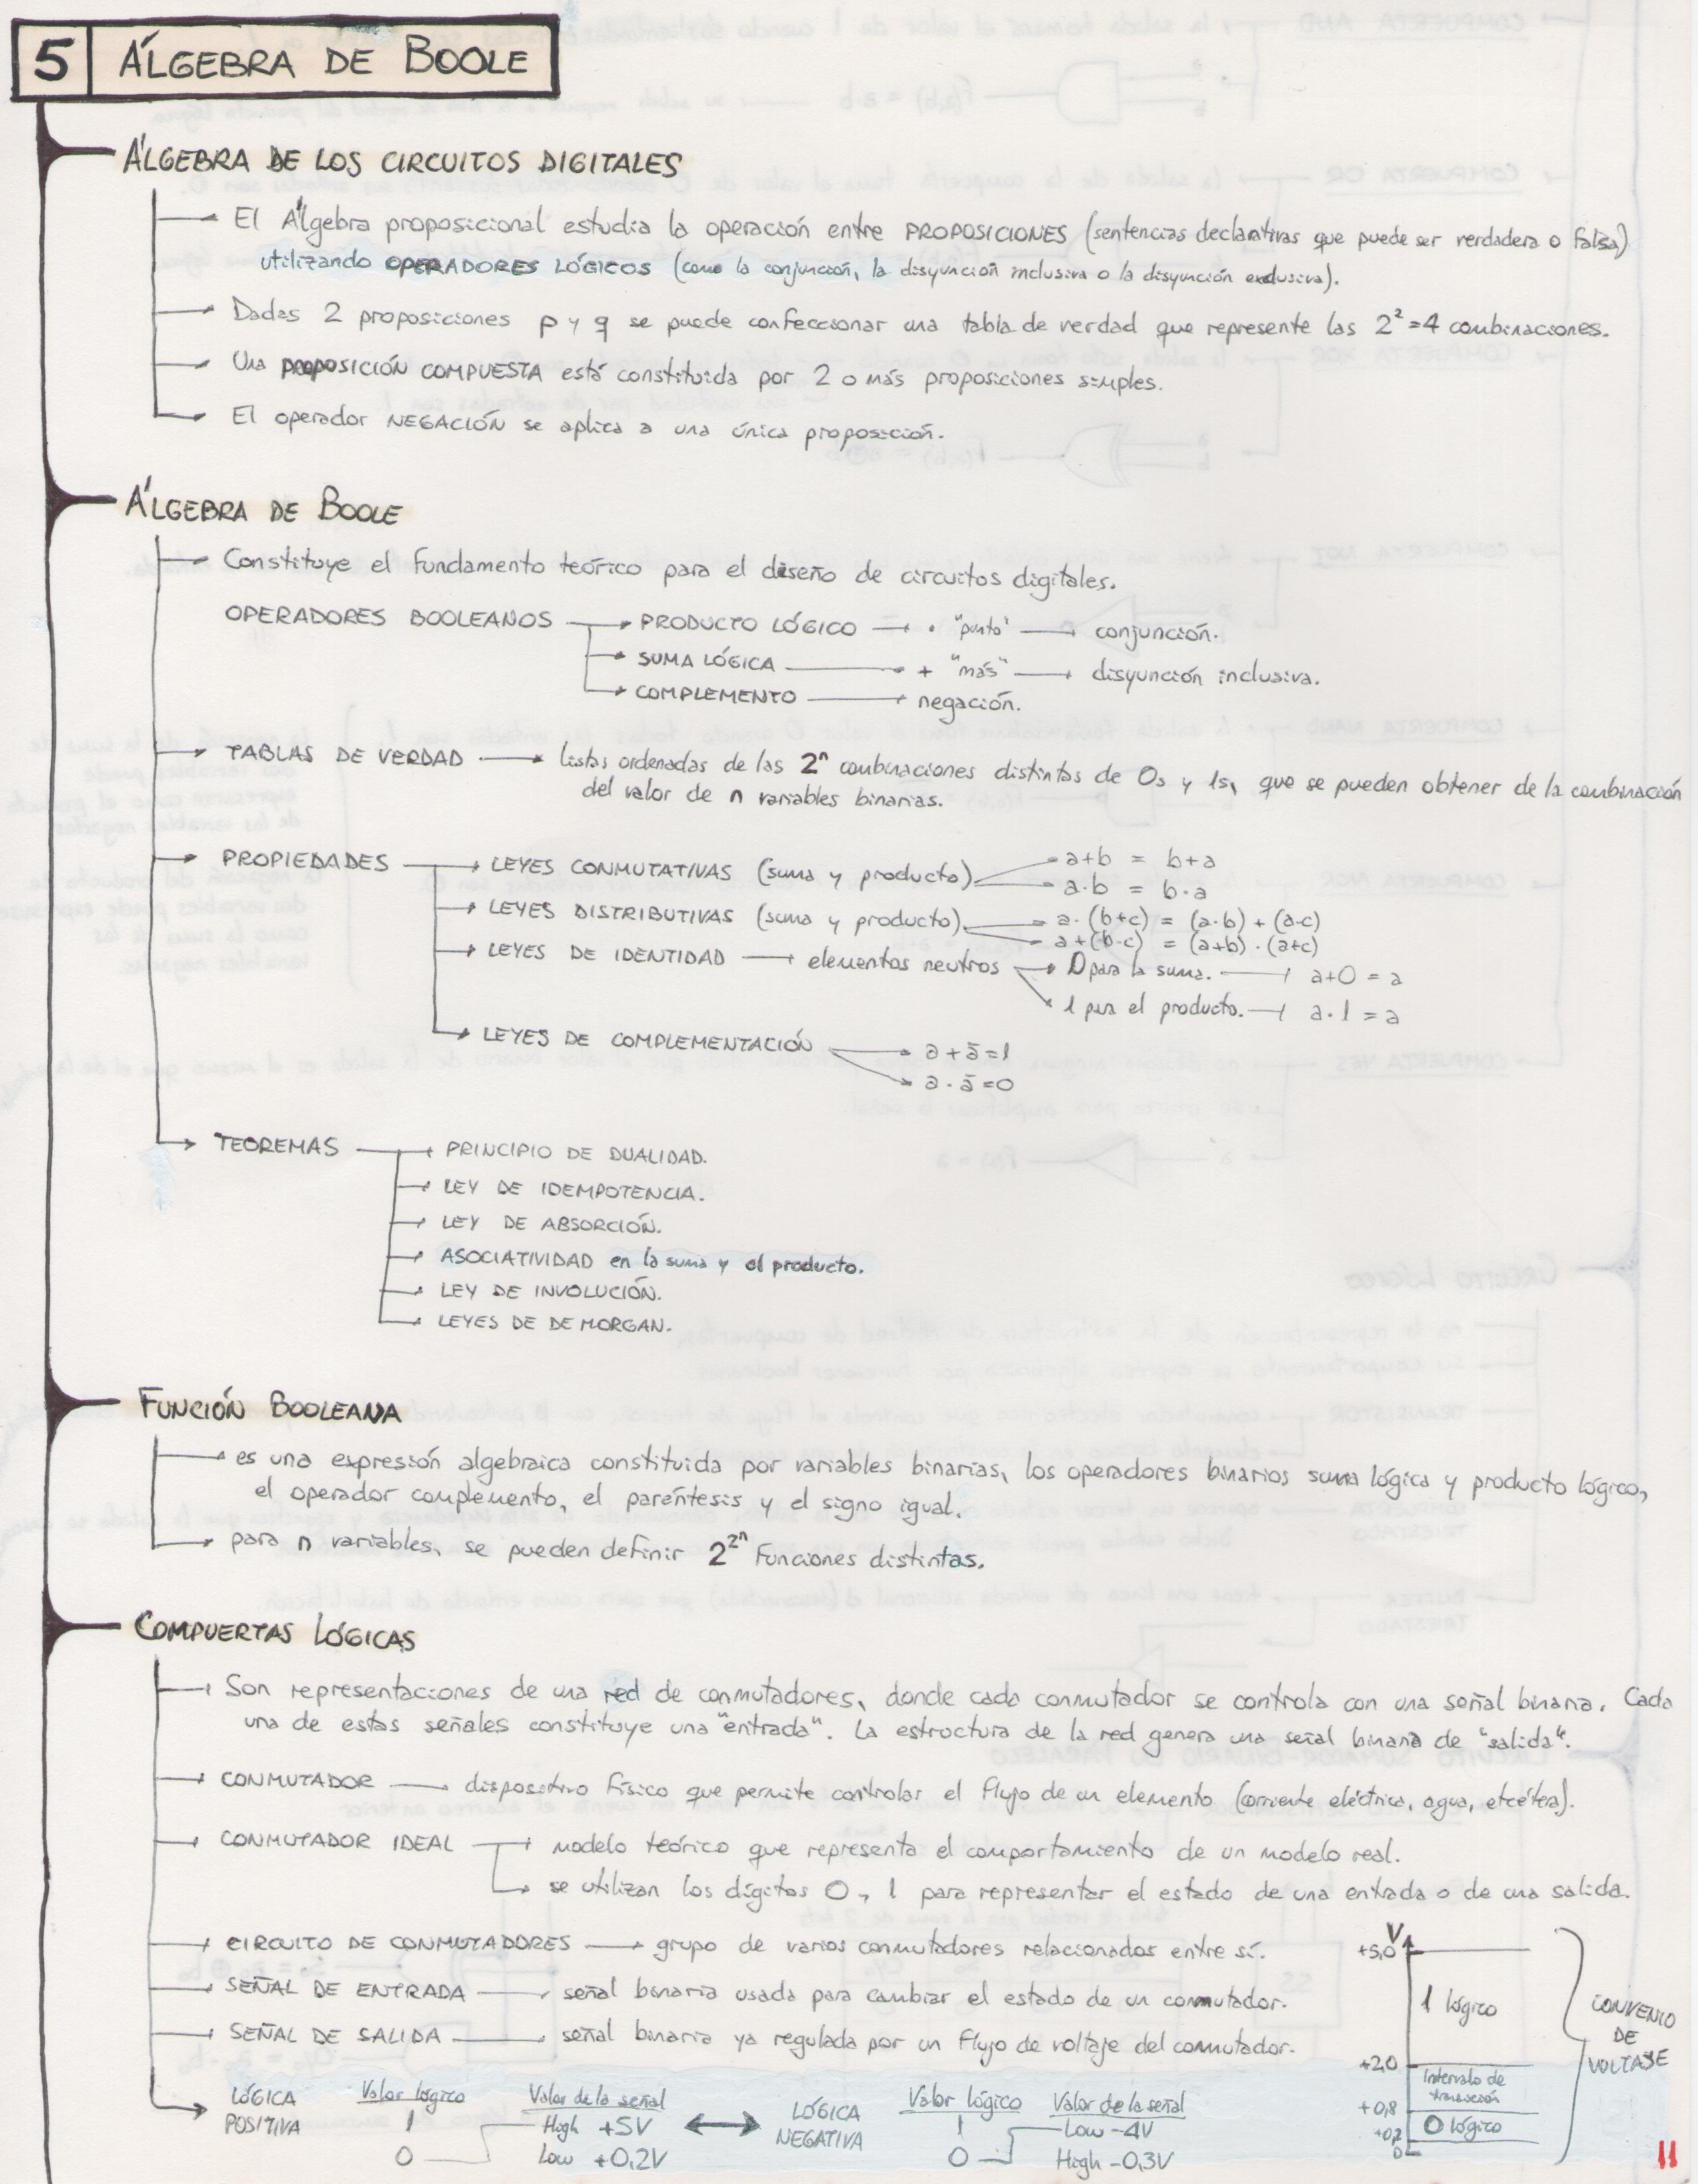 5 ÁLGEBRA DE BOOLE
ÁLGEBRA DE LOS CIRCUITOS DIGITALES
El Álgebra proposicional estudia la operación entre PROPOSICIONES (sentencias declarativas que puede ser verdadera o falsa)
utilizando OPERADORES LÓGICOS (como la conjunción, la disyunción inclusiva o la disyunción exclusiva).
Dadas 2 proposiciones p y q se puede confeccionar una tabla de verdad que represente las 2² = 4 combinaciones.
Una PROPOSICIÓN COMPUESTA está constituida por 2 o más proposiciones simples.
El operador NEGACIÓN se aplica a una única proposición.
ÁLGEBRA DE BOOLE
Constituye el fundamento teórico para el diseño de circuitos digitales.
OPERADORES BOOLEANOS → PRODUCTO LÓGICO → · "punto" → conjunción.
→ SUMA LÓGICA → + "más" → disyunción inclusiva.
→ COMPLEMENTO → negación.
TABLAS DE VERDAD → listas ordenadas de las 2ⁿ combinaciones distintas de 0s y 1s, que se pueden obtener de la combinación
del valor de n variables binarias.
PROPIEDADES → LEYES CONMUTATIVAS (suma y producto) → a+b = b+a
→ a·b = b·a
→ LEYES DISTRIBUTIVAS (suma y producto) → a·(b+c) = (a·b) + (a·c)
→ a+(b·c) = (a+b)·(a+c)
→ LEYES DE IDENTIDAD → elementos neutros → 0 para la suma. → a+0 = a
→ 1 para el producto. → a·1 = a
→ LEYES DE COMPLEMENTACIÓN → a+ā=1
→ a·ā=0
TEOREMAS → PRINCIPIO DE DUALIDAD.
→ LEY DE IDEMPOTENCIA.
→ LEY DE ABSORCIÓN.
→ ASOCIATIVIDAD en la suma y el producto.
→ LEY DE INVOLUCIÓN.
→ LEYES DE DE MORGAN.
FUNCIÓN BOOLEANA
es una expresión algebraica constituida por variables binarias, los operadores binarios suma lógica y producto lógico,
el operador complemento, el paréntesis y el signo igual.
para n variables, se pueden definir 2^2^n funciones distintas.
COMPUERTAS LÓGICAS
Son representaciones de una red de conmutadores, donde cada conmutador se controla con una señal binaria. Cada
una de estas señales constituye una "entrada". La estructura de la red genera una señal binaria de "salida".
CONMUTADOR → dispositivo físico que permite controlar el flujo de un elemento (corriente eléctrica, agua, etcétera).
CONMUTADOR IDEAL → modelo teórico que representa el comportamiento de un modelo real.
→ se utilizan los dígitos 0 y 1 para representar el estado de una entrada o de una salida.
CIRCUITO DE CONMUTADORES → grupo de varios conmutadores relacionados entre sí.
SEÑAL DE ENTRADA → señal binaria usada para cambiar el estado de un conmutador.
SEÑAL DE SALIDA → señal binaria ya regulada por un flujo de voltaje del conmutador.
LÓGICA POSITIVA
Valor lógico Valor de la señal
1 High +5V
0 Low +0,2V
LÓGICA NEGATIVA
Valor lógico Valor de la señal
1 Low -4V
0 High -0,3V
V
+5,0
1 lógico
+2,0
Intervalo de
transición
+0,8
0 lógico
+0,2
0
CONVENIO
DE
VOLTAJE
11